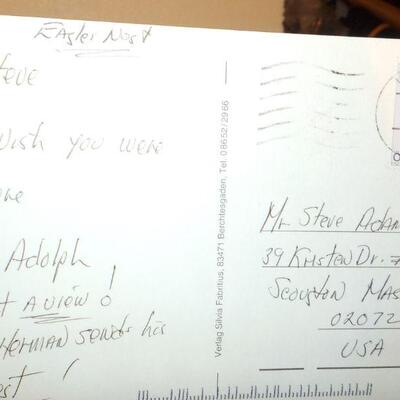 Eagles Nest
Steve
Wish you were
Adolph
A VIEW!
Herman sends his
Verlag Silvia Fabritius, 83471 Berchtesgaden, Tel. 08652/2966
Mr Steve Adam
39 Kristen Dr.
Mas
02072
USA